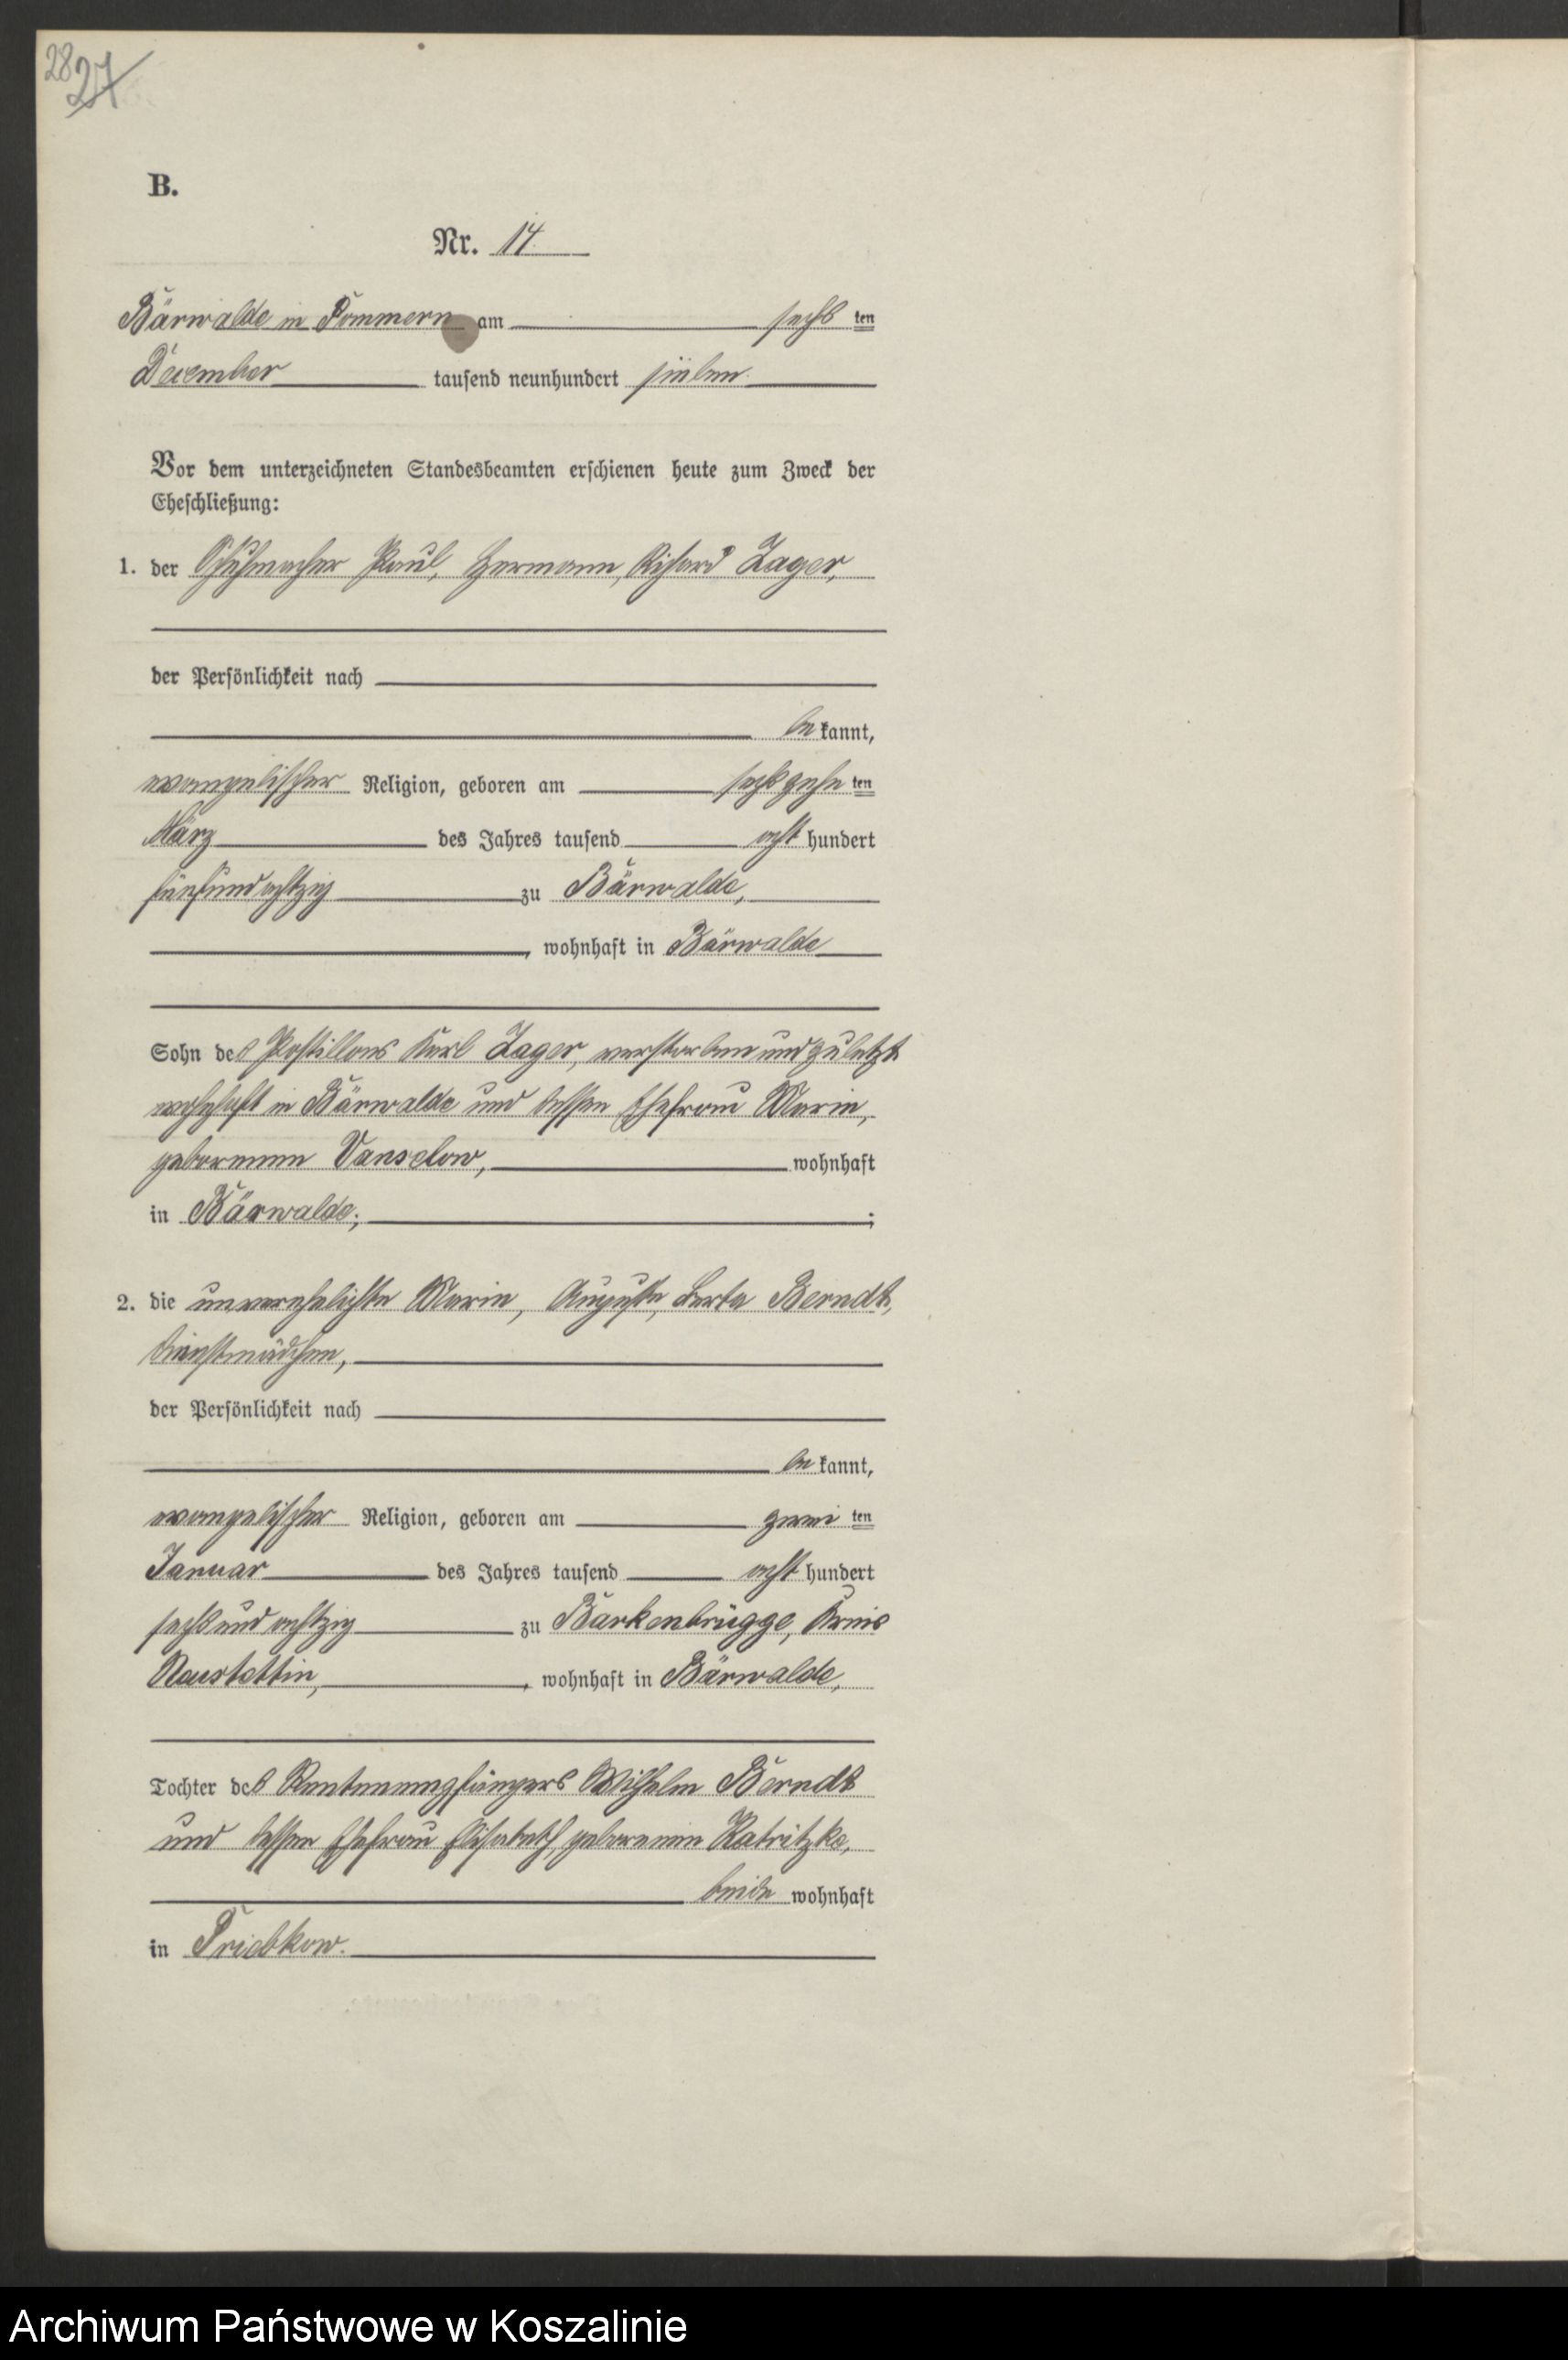 28 27
B.
Nr. 14.
Bärwalde in Pommern am sechs ten
December tausend neunhundert sieben
Vor dem unterzeichneten Standesbeamten erschienen heute zum Zweck der
Eheschließung:
1. der Schuhmacher Paul, Hermann, Richard Zager,
der Persönlichkeit nach
be kannt,
evangelischer Religion, geboren am sechszehn ten
März des Jahres tausend acht hundert
fünfundachtzig zu Bärwalde,
, wohnhaft in Bärwalde
Sohn des Postillons Karl Zager, verstorben und zuletzt
wohnhaft in Bärwalde und dessen Ehefrau Marie,
geborenen Vanselow, wohnhaft
in Bärwalde; ;
2. die unverehelichte Marie, Auguste, Berta Berndt,
Dienstmädchen,
der Persönlichkeit nach
be kannt,
evangelischer Religion, geboren am zwei ten
Januar des Jahres tausend acht hundert
sechsundachtzig zu Barkenbrügge, Kreis
Neustettin, , wohnhaft in Bärwalde,
Tochter des Rentenempfängers Wilhelm Berndt
und dessen Ehefrau Elisabeth, geborenen Ratritzke,
beide wohnhaft
in Priebkow.
Archiwum Państwowe w Koszalinie